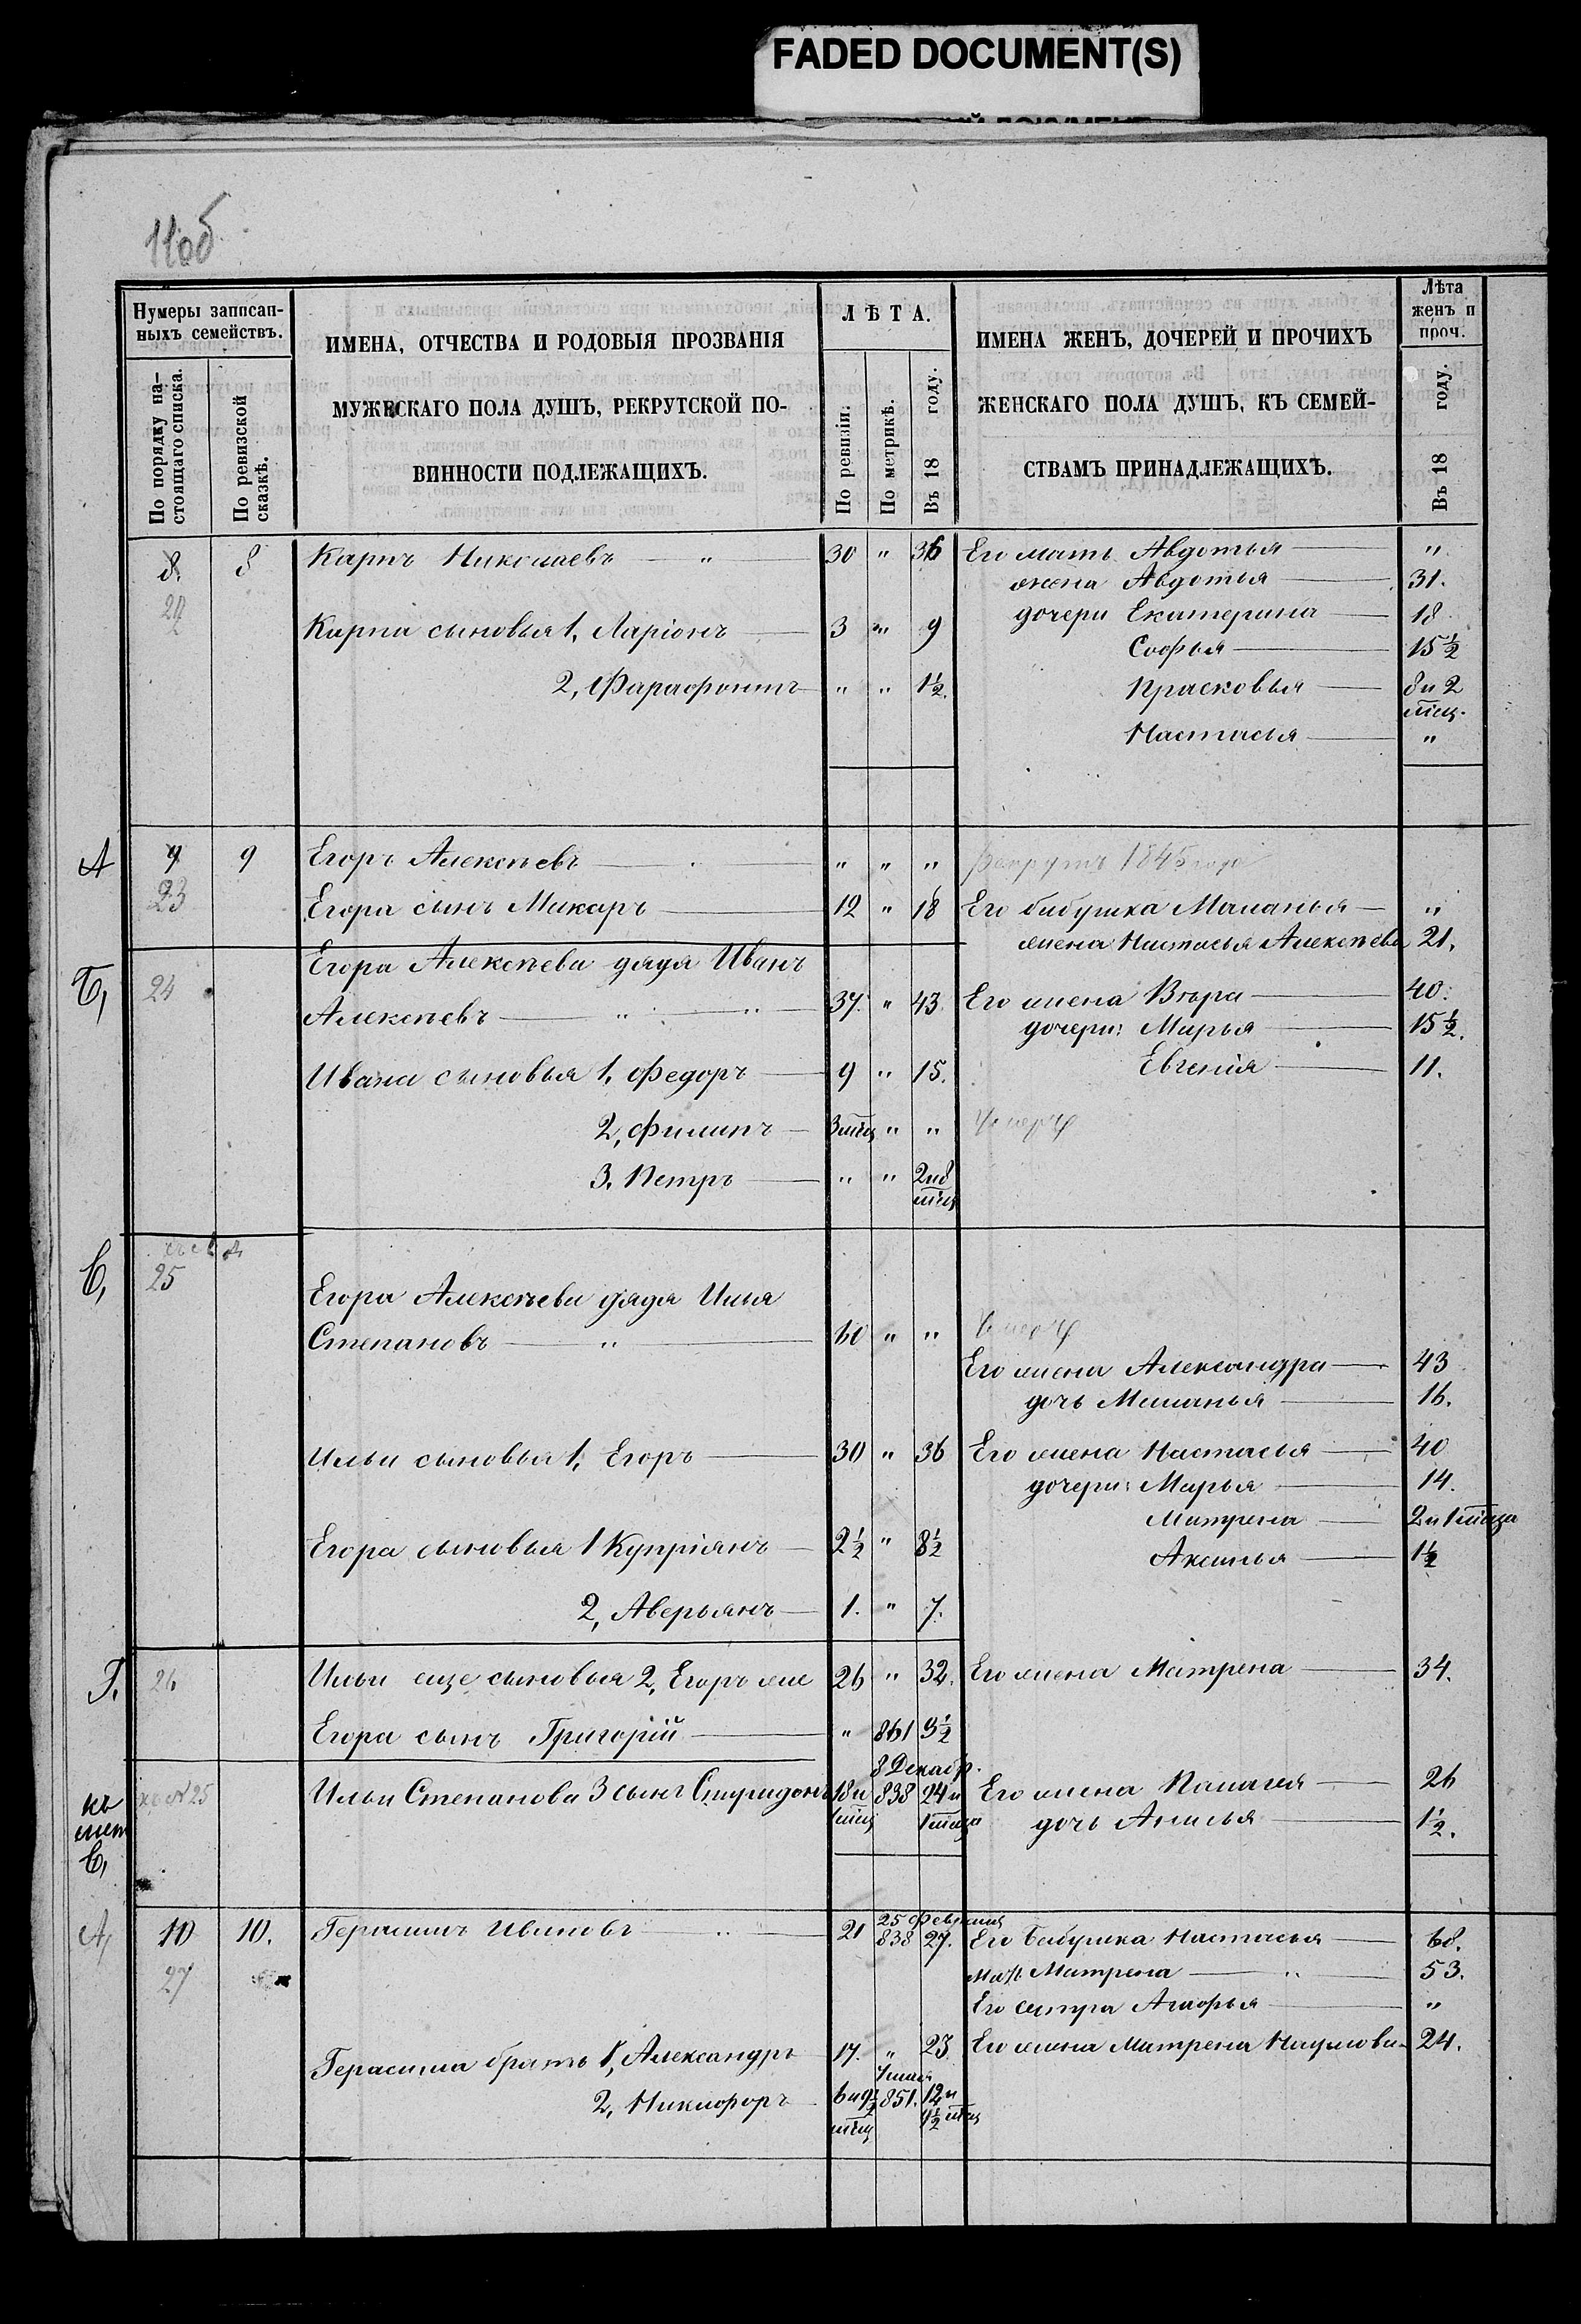 FADED DOCUMENT(S)
11об
Нумеры записан-
ныхъ семействъ.
По порядку на-
стоящаго списка.
По ревизской
сказкѣ.
ИМЕНА, ОТЧЕСТВА И РОДОВЫЯ ПРОЗВАНІЯ
МУЖЕСКАГО ПОЛА ДУШЪ, РЕКРУТСКОЙ ПО-
ВИННОСТИ ПОДЛЕЖАЩИХЪ.
ЛѢТА.
По ревизіи.
По метрикѣ.
Въ 18 году.
ИМЕНА ЖЕНЪ, ДОЧЕРЕЙ И ПРОЧИХЪ
ЖЕНСКАГО ПОЛА ДУШЪ, КЪ СЕМЕЙ-
СТВАМЪ ПРИНАДЛЕЖАЩИХЪ.
Лѣта
женъ и
проч.
Въ 18 году.
8. 8 Карпъ Николаевъ — " — 30 " 36 Его мать Авдотья — "
жена Авдотья — 31.
22
дочери Екатерина — 18
Карпа сыновья 1, Ларіонъ — 3 " 9
Софья — 15½
2, Фарафонтъ — " " 1½. Прасковья — 8 и 2
мѣц.
Настасья — "
А 9 9 Егоръ Алексѣевъ — " " " рекрутъ 1845 года
23 Егора сынъ Макаръ — 12 " 18 Его бабушка Маланья — "
жена Настасья Алексѣева 21.
Б, 24 Егора Алексѣева дядя Иванъ
Алексѣевъ — " — " — 37. " 43. Его жена Вѣра — 40.
дочери: Марья — 15½.
Ивана сыновья 1, Федоръ — 9 " 15. Евгенія — 11.
2, Филипъ — 3 мѣц " " Умеръ
3. Петръ — " " 2 и 8
мѣц
В, 25
Егора Алексѣева дядя Илья
Степановъ — " — 60 " " Умеръ
Его жена Александра — 43
дочь Маланья — 16.
Ильи сыновья 1, Егоръ — 30 " 36 Его жена Настасья — 40
дочери: Марья — 14.
Матрена — 2 и 1 мѣца
Егора сыновья 1 Купріянъ — 2½ " 8½ Аксинья — 1½
2, Аверьянъ — 1. " 7.
Г. 26 Ильи еще сыновья 2, Егоръ же 26 " 32. Его жена Матрена — 34.
Егора сынъ Григорій — " 861 3½
8 Декабр.
къ
лит
В, къ №25 Ильи Степанова 3 сынъ Спиридонъ 18 и 838 24 и Его жена Палагея — 26
1 мѣц 1 мѣца дочь Анисья — 1½.
А, 10 10. Герасимъ Ивановъ — " — 21 25 Февраля
838 27. Его бабушка Настасья — 68.
27 Мать Матрена — " — 53.
Его сестра Агафья — "
Герасима братъ 1, Александръ 17. " 23 Его жена Матрена Наумова — 24.
2, Никифоръ 6 и 9½ 851. 12 и
мѣц 4½ мѣц